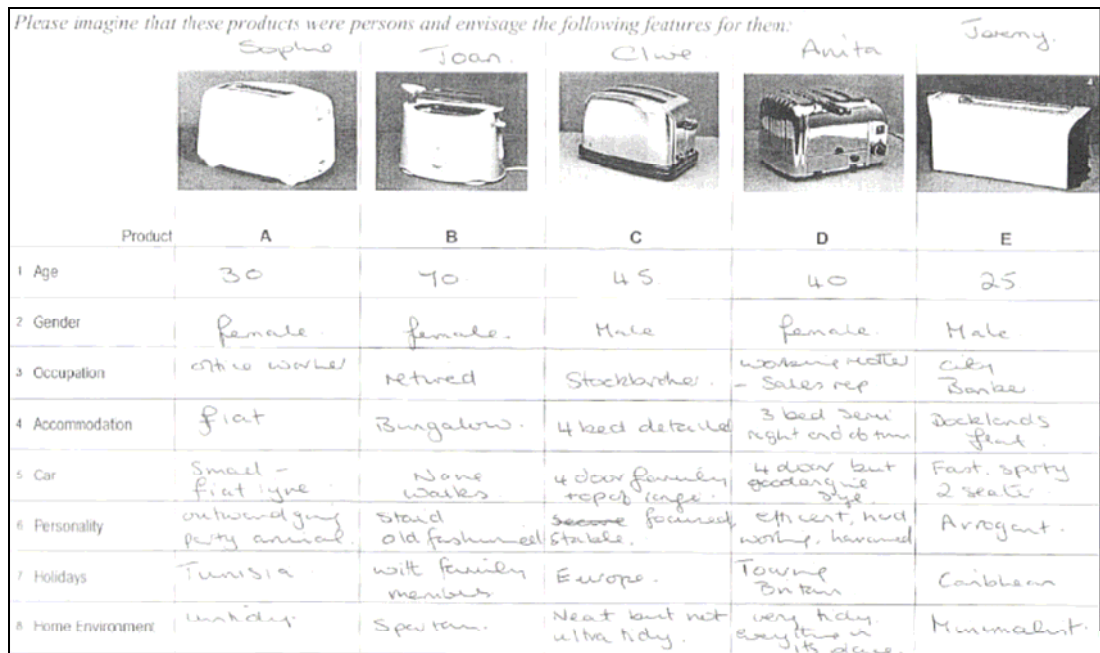 Please imagine that these products were persons and envisage the following features for them:
Sophie Joan. Clive. Anita Jeremy.
4
Product A B C D E
1 Age 30 70 45. 40 25
2 Gender female. female. Male female. Male.
3 Occupation office worker retired Stockbroker. working mother - Sales rep City Banker
4 Accommodation flat Bungalow. 4 bed detatched 3 bed semi right end of town Docklands flat.
5 Car Small - fiat None walks 4 door family top of range. 4 door but good engine size Fast. sporty 2 seater.
6 Personality outward going party animal. Staid old fashioned focused, Stable. efficient, hard working, harassed Arrogant.
7 Holidays Tunisia. with family members Europe. Touring Britain Caribbean
8 Home Environment untidy. Spartan. Neat but not ultra tidy. very tidy. everything in its place. Minimalist.